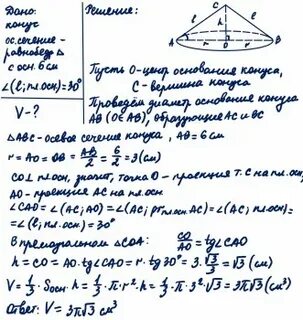 Дано:
конус
ос. сечение -
равнобедр. Δ
с осн. 6 см
∠(l; пл.осн) = 30°
V - ?
Решение:
C
l
h
l
A
r
O
r
B
Пусть O-центр основания конуса,
C - вершина конуса
Проведём диаметр основания конуса
AB (O∈AB), образующие AC и BC
ΔABC - осевое сечение конуса, AB = 6 см
r = AO = OB = AB/2 = 6/2 = 3 (см)
CO⊥ пл.осн, значит, точка O - проекция т. C на пл.осн,
AO - проекция AC на пл.осн
∠CAO = ∠(AC; AO) = ∠(AC; pr пл.осн AC) = ∠(AC; пл.осн) =
= ∠(l; пл.осн) = 30°
В прямоугольном ΔCOA: CO/AO = tg∠CAO
h = CO = AO·tg∠CAO = r·tg30° = 3·√3/3 = √3 (см)
V = 1/3·Sосн·h = 1/3·π·r²·h = 1/3·π·3²·√3 = 3π√3 (см³)
Ответ: V = 3π√3 см³